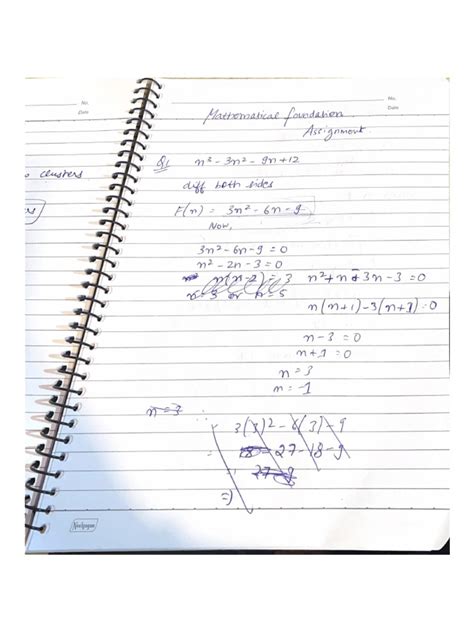 No.
Date
No.
Date
Mathematical foundation
Assignment.
Q1 n³ - 3n² - 9n + 12
clusters
diff both sides
F(n) = 3n² - 6n - 9
Now,
3n² - 6n - 9 = 0
n² - 2n - 3 = 0
n(n-2) = 3 n² + n - 3n - 3 = 0
n = 3 or n = 5
n(n+1) - 3(n+1) = 0
n - 3 = 0
n + 1 = 0
n = 3
n = -1
n = 3 ∴
3(3)² - 6(3) - 9
= 18 - 27 - 18 - 9
= 27 - 9
=)
Neelgagan